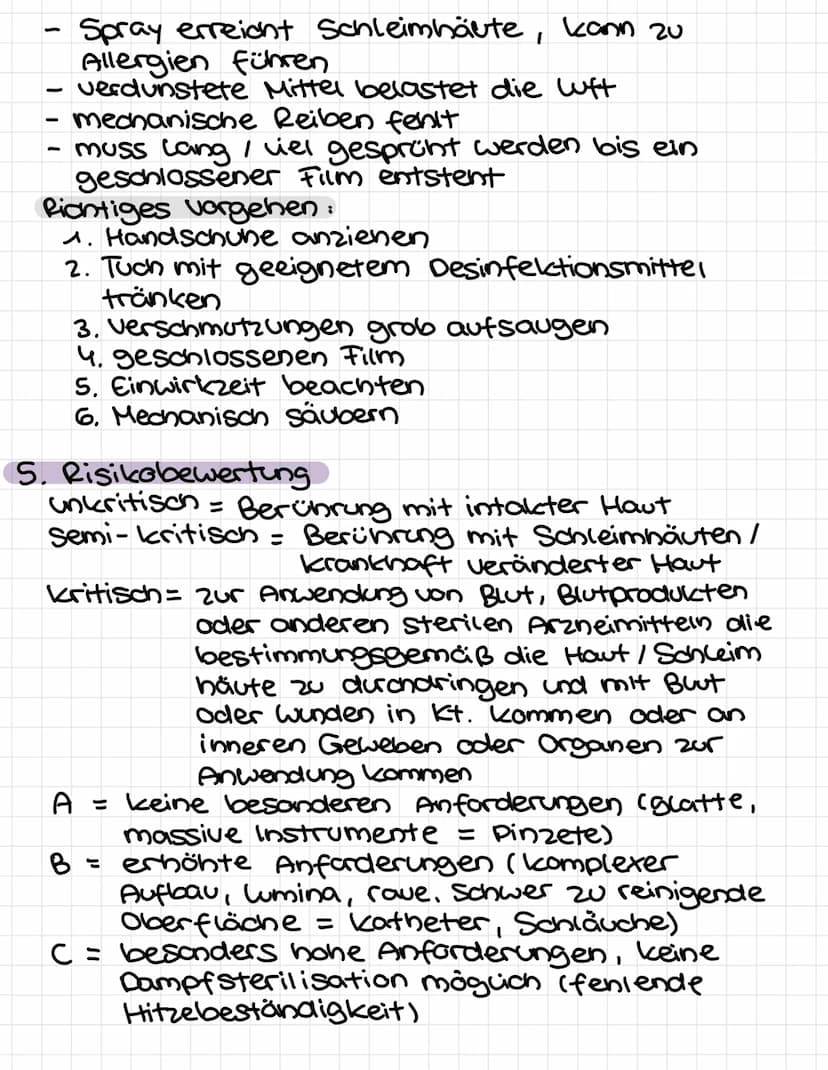 - Spray erreicht Schleimhäute, kann zu
Allergien führen
- verdunstete Mittel belastet die Luft
- mechanische Reiben fehlt
- muss lang / viel gesprüht werden bis ein
geschlossener Film entsteht
Richtiges Vorgehen:
1. Handschuhe anziehen
2. Tuch mit geeignetem Desinfektionsmittel
tränken
3. Verschmutzungen grob aufsaugen
4. geschlossenen Film
5. Einwirkzeit beachten
6. Mechanisch säubern
5. Risikobewertung
unkritisch = Berührung mit intakter Haut
semi-kritisch = Berührung mit Schleimhäuten /
krankhaft veränderter Haut
kritisch = zur Anwendung von Blut, Blutprodukten
oder anderen sterilen Arzneimitteln die
bestimmungsgemäß die Haut / Schleim
häute zu durchdringen und mit Blut
oder Wunden in Kt. kommen oder an
inneren Geweben oder Organen zur
Anwendung kommen
A = keine besonderen Anforderungen (glatte,
massive Instrumente = Pinzete)
B = erhöhte Anforderungen (komplexer
Aufbau, Lumina, raue, schwer zu reinigende
Oberfläche = Katheter, Schläuche)
C = besonders hohe Anforderungen, keine
Dampfsterilisation möglich (fehlende
Hitzebeständigkeit)